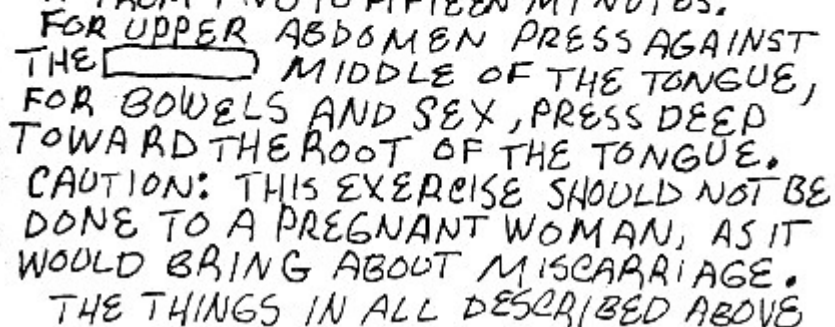 FROM TWO TO FIFTEEN MINUTES.
FOR UPPER ABDOMEN PRESS AGAINST
THE MIDDLE OF THE TONGUE,
FOR BOWELS AND SEX, PRESS DEEP
TOWARD THE ROOT OF THE TONGUE.
CAUTION: THIS EXERCISE SHOULD NOT BE
DONE TO A PREGNANT WOMAN, AS IT
WOULD BRING ABOUT MISCARRIAGE.
THE THINGS IN ALL DESCRIBED ABOVE